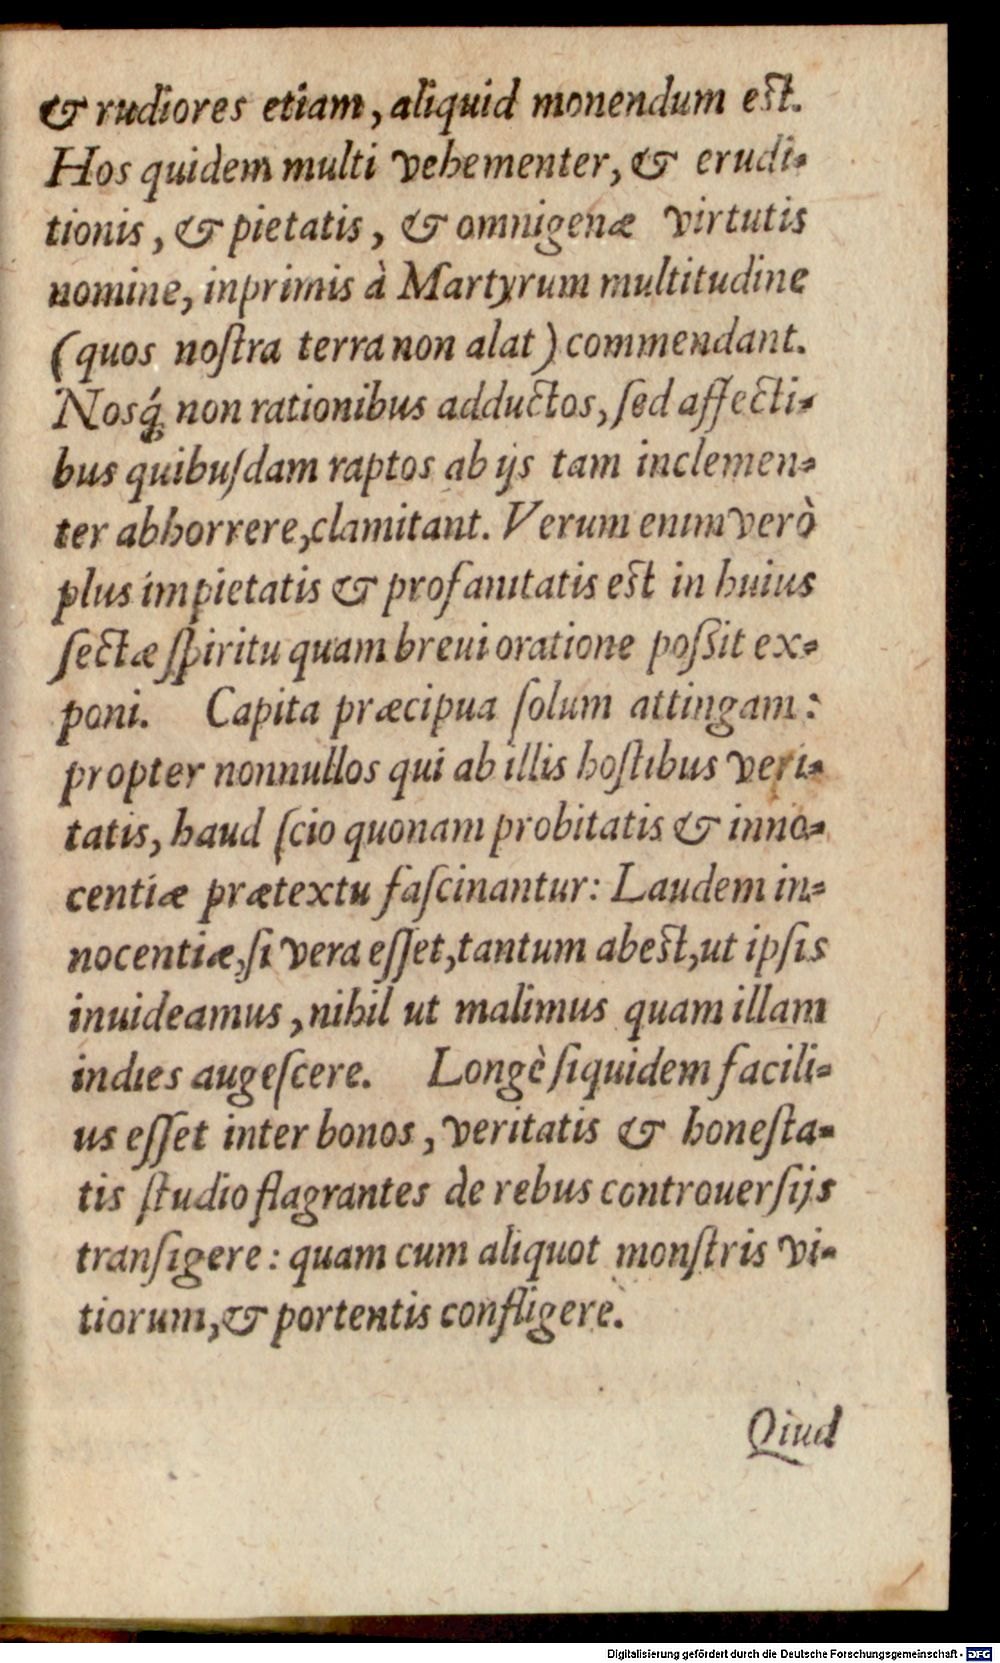 & rudiores etiam, aliquid monendum est.
Hos quidem multi vehementer, & erudi-
tionis, & pietatis, & omnigenæ virtutis
nomine, inprimis à Martyrum multitudine
(quos noſtra terra non alat) commendant.
Nosq́; non rationibus adductos, ſed affecti-
bus quibuſdam raptos ab ijs tam inclemen-
ter abhorrere, clamitant. Verum enim verò
plus impietatis & profanitatis est in huius
ſectæ ſpiritu quam breui oratione poſsit ex-
poni. Capita præcipua ſolum attingam:
propter nonnullos qui ab illis hoſtibus veri-
tatis, haud ſcio quonam probitatis & inno-
centiæ prætextu faſcinantur: Laudem in-
nocentiæ, ſi vera eſſet, tantum abest, ut ipſis
inuideamus, nihil ut malimus quam illam
indies augeſcere. Longè ſiquidem facili-
us eſſet inter bonos, veritatis & honeſta-
tis ſtudio flagrantes de rebus controuerſijs
tranſigere: quam cum aliquot monſtris vi-
tiorum, & portentis confligere.
Qiud
Digitalisierung gefördert durch die Deutsche Forschungsgemeinschaft - DFG